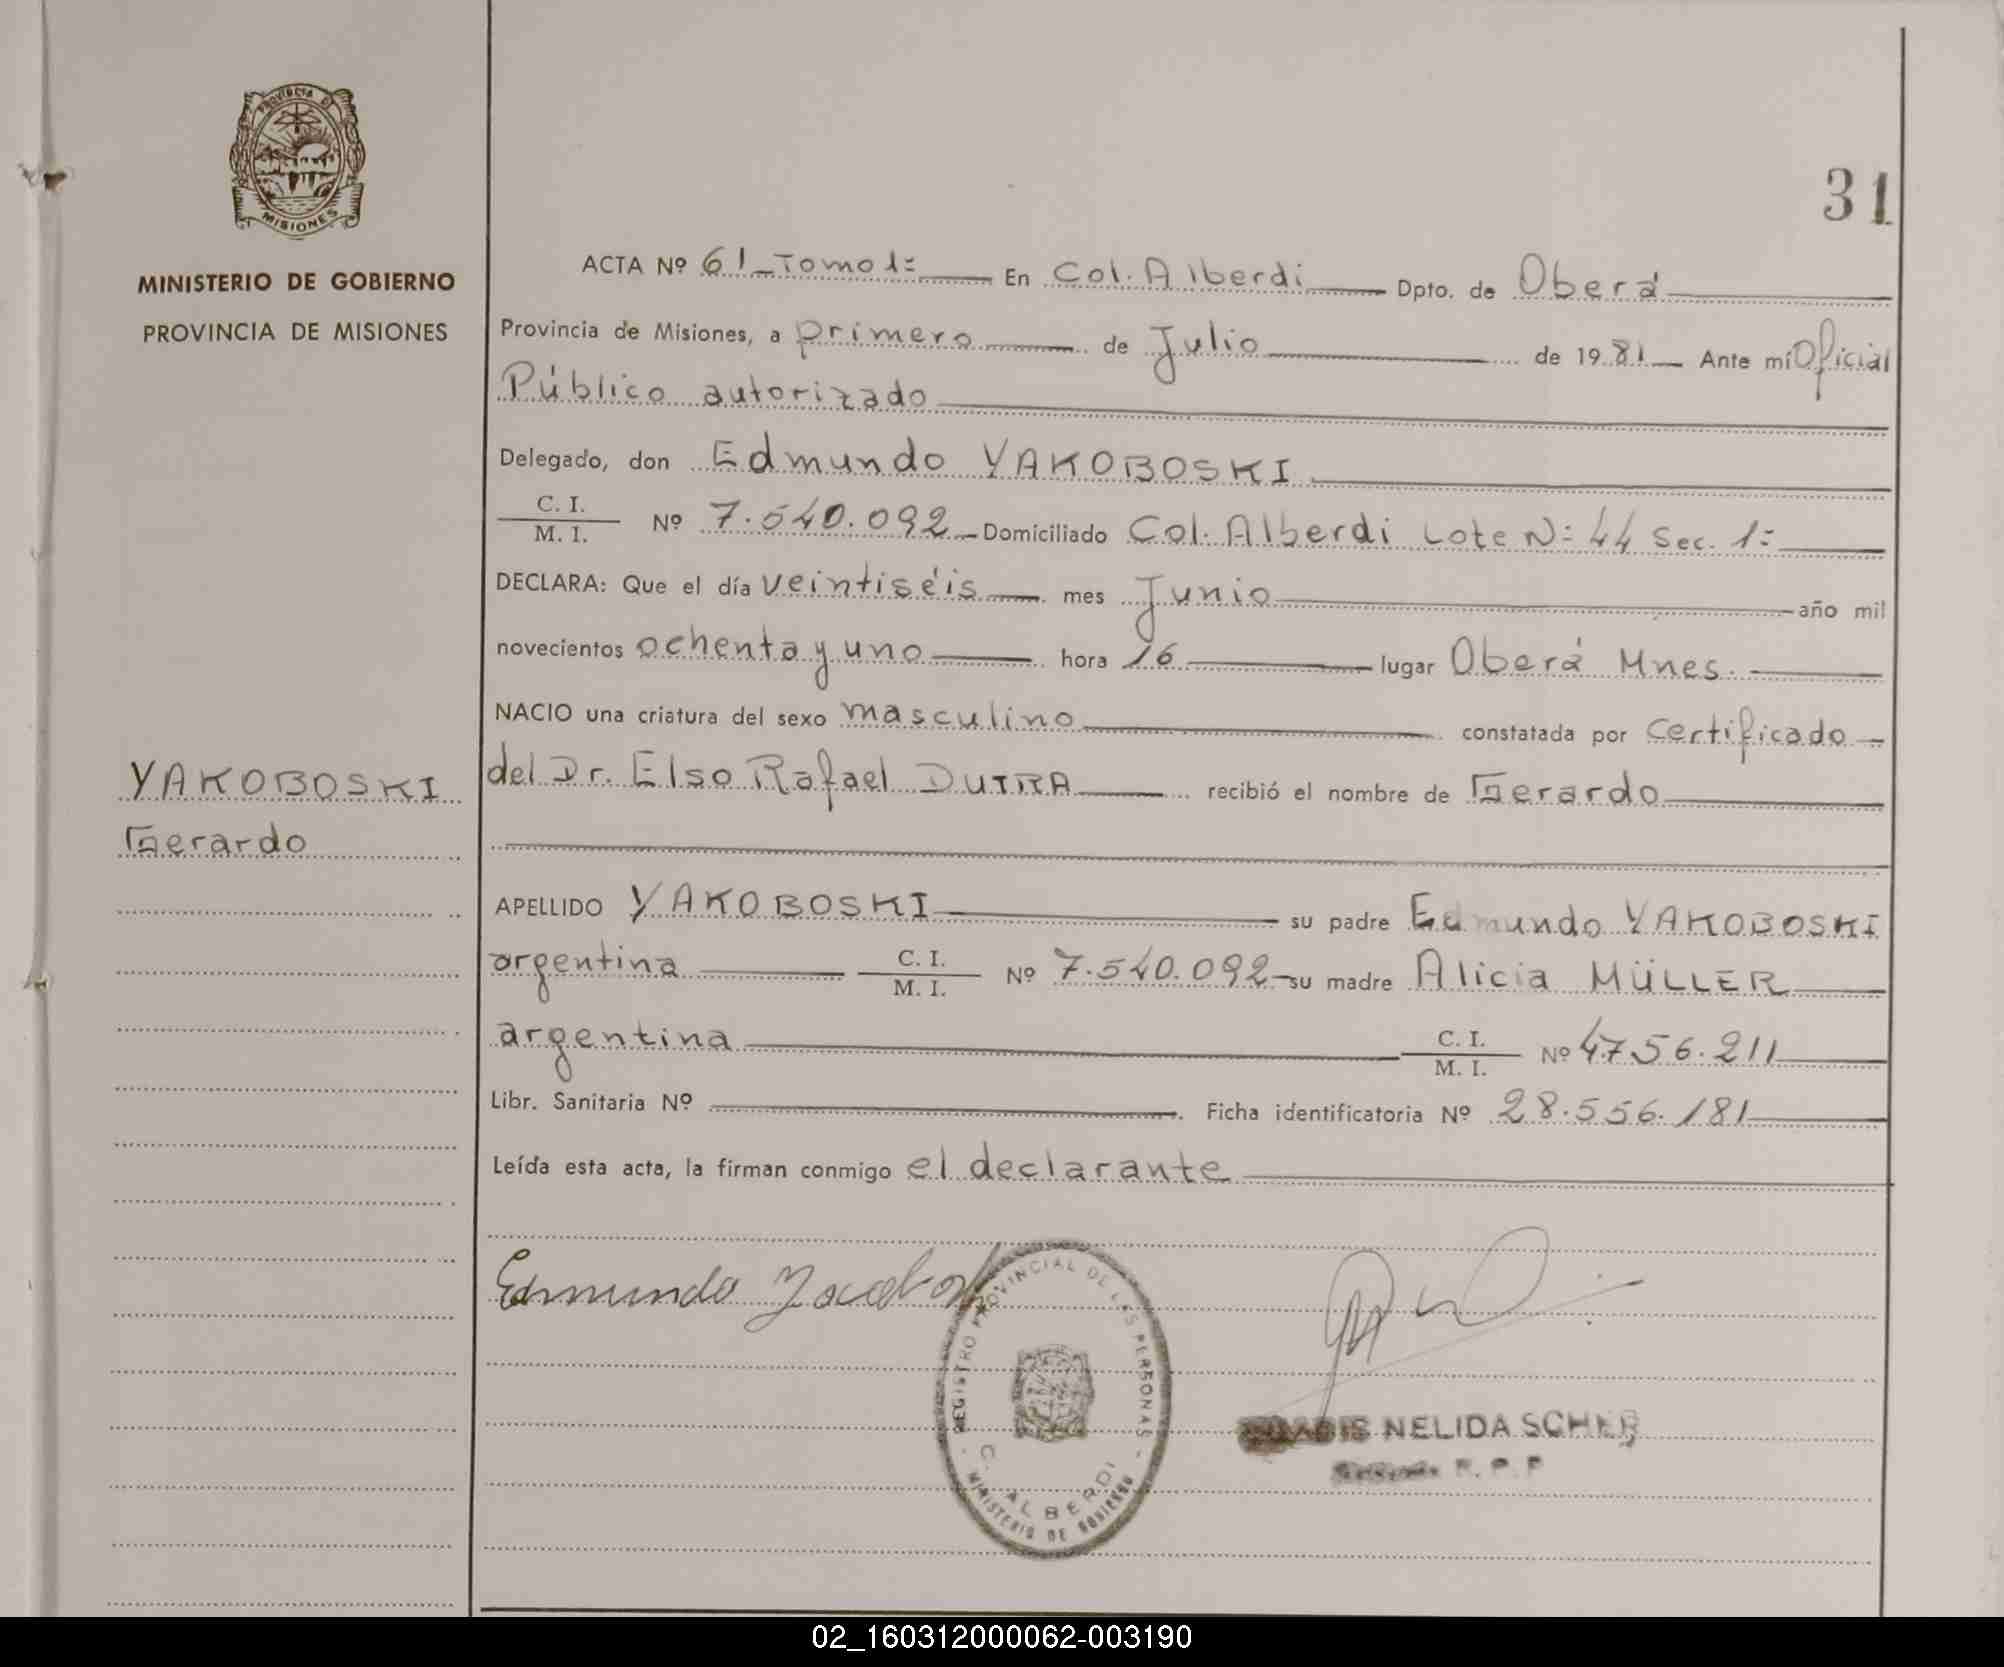 PROVINCIA DE
MISIONES
MINISTERIO DE GOBIERNO
PROVINCIA DE MISIONES
31
ACTA Nº 61_Tomo 1= En Col. Alberdi Dpto. de Oberá
Provincia de Misiones, a primero de Julio de 1981 Ante mí Oficial
Público autorizado
Delegado, don Edmundo YAKOBOSKI
C. I.
M. I. Nº 7.540.092 Domiciliado Col. Alberdi Lote N= 44 Sec. 1=
DECLARA: Que el día veintiséis mes Junio año mil
novecientos ochenta y uno hora 16 lugar Oberá Mnes.
NACIO una criatura del sexo masculino constatada por certificado
del Dr. Elso Rafael DUTRA recibió el nombre de Gerardo
YAKOBOSKI
Gerardo
APELLIDO YAKOBOSKI su padre Edmundo YAKOBOSKI
argentina C. I. M. I. Nº 7.540.092 su madre Alicia MÜLLER
argentina C. I. M. I. Nº 4.756.211
Libr. Sanitaria Nº Ficha identificatoria Nº 28.556.181
Leída esta acta, la firman conmigo el declarante
Edmundo
REGISTRO PROVINCIAL DE LAS PERSONAS
C. ALBERDI
MINISTERIO DE GOBIERNO
NELIDA SCHER
R. P. P
02_160312000062-003190